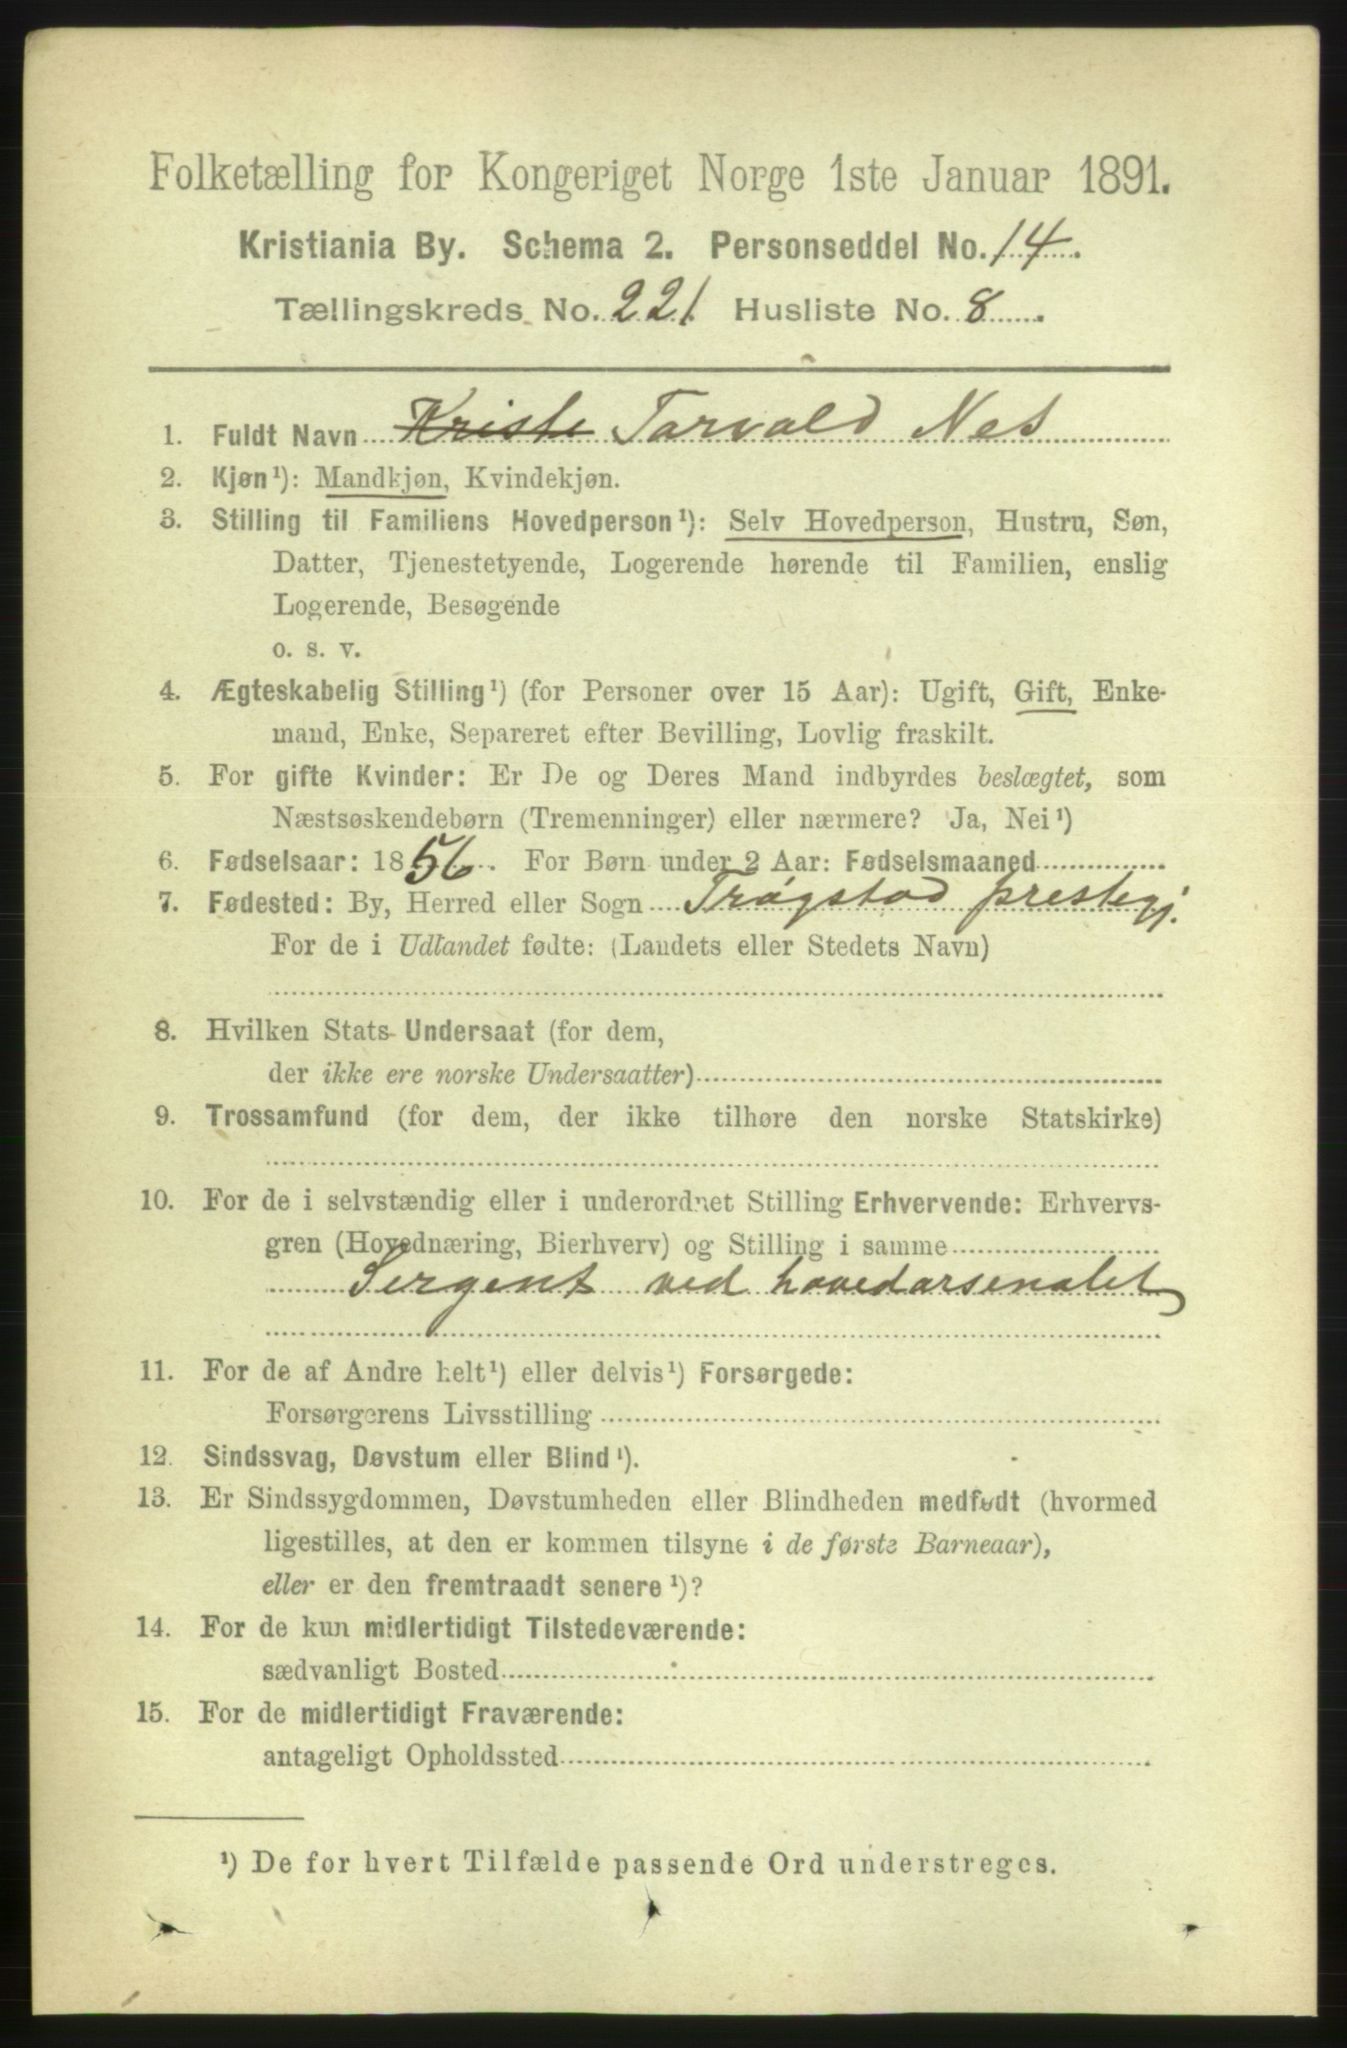 Folketælling for Kongeriget Norge 1ste Januar 1891.
Kristiania By. Schema 2. Personseddel No. 14.
Tællingskreds No. 221 Husliste No. 8.
1. Fuldt Navn Kriste Torvald Nes
2. Kjøn¹): Mandkjøn, Kvindekjøn.
3. Stilling til Familiens Hovedperson¹): Selv Hovedperson, Hustru, Søn,
Datter, Tjenestetyende, Logerende hørende til Familien, enslig
Logerende, Besøgende
o. s. v.
4. Ægteskabelig Stilling¹) (for Personer over 15 Aar): Ugift, Gift, Enke-
mand, Enke, Separeret efter Bevilling, Lovlig fraskilt.
5. For gifte Kvinder: Er De og Deres Mand indbyrdes beslægtet, som
Næstsøskendebørn (Tremenninger) eller nærmere? Ja, Nei¹)
6. Fødselsaar: 1856. For Børn under 2 Aar: Fødselsmaaned
7. Fødested: By, Herred eller Sogn Trøgstad prestegj.
For de i Udlandet fødte: (Landets eller Stedets Navn)
8. Hvilken Stats Undersaat (for dem,
der ikke ere norske Undersaatter)
9. Trossamfund (for dem, der ikke tilhøre den norske Statskirke)
10. For de i selvstændig eller i underordnet Stilling Erhvervende: Erhvervs-
gren (Hovednæring, Bierhverv) og Stilling i samme
Sergent ved hovedarsenalet
11. For de af Andre helt¹) eller delvis¹) Forsørgede:
Forsørgerens Livsstilling
12. Sindssvag, Døvstum eller Blind¹).
13. Er Sindssygdommen, Døvstumheden eller Blindheden medfødt (hvormed
ligestilles, at den er kommen tilsyne i de første Barneaar),
eller er den fremtraadt senere¹)?
14. For de kun midlertidigt Tilstedeværende:
sædvanligt Bosted
15. For de midlertidigt Fraværende:
antageligt Opholdssted
¹) De for hvert Tilfælde passende Ord understreges.